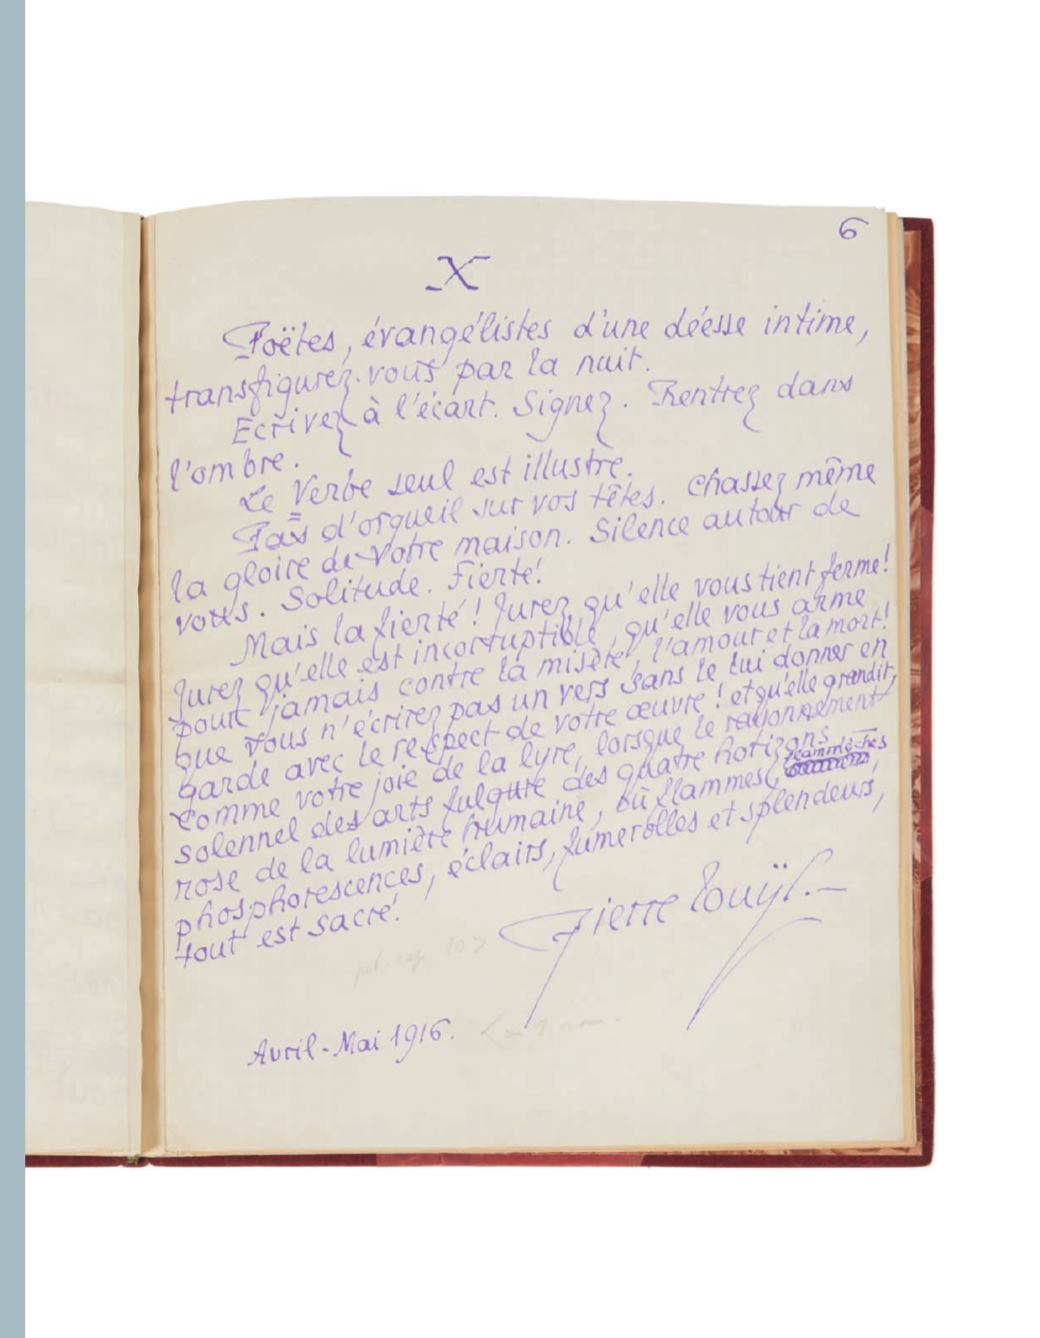 6
X
Poëtes, évangélistes d'une déesse intime,
transfigurez-vous par la nuit.
Écrivez à l'écart. Signez. Rentrez dans
l'ombre.
Le Verbe seul est illustre.
Pas d'orgueil sur vos têtes. Chassez même
la gloire de votre maison. Silence autour de
vous. Solitude. Fierté!
Mais la fierté! Jurez qu'elle vous tient ferme!
Jurez qu'elle est incorruptible, qu'elle vous arme
pour jamais contre la misère, l'amour et la mort!
que vous n'écrirez pas un vers sans le lui donner en
garde avec le respect de votre œuvre! et qu'elle grandit,
comme votre joie de la lyre, lorsque le rayonnement
solennel des arts fulgure des quatre horizons
rose de la lumière humaine, où flammes,
phosphorescences, éclairs, fumerolles et splendeurs,
tout est sacré!
Pierre Louÿs.
Avril-Mai 1916.